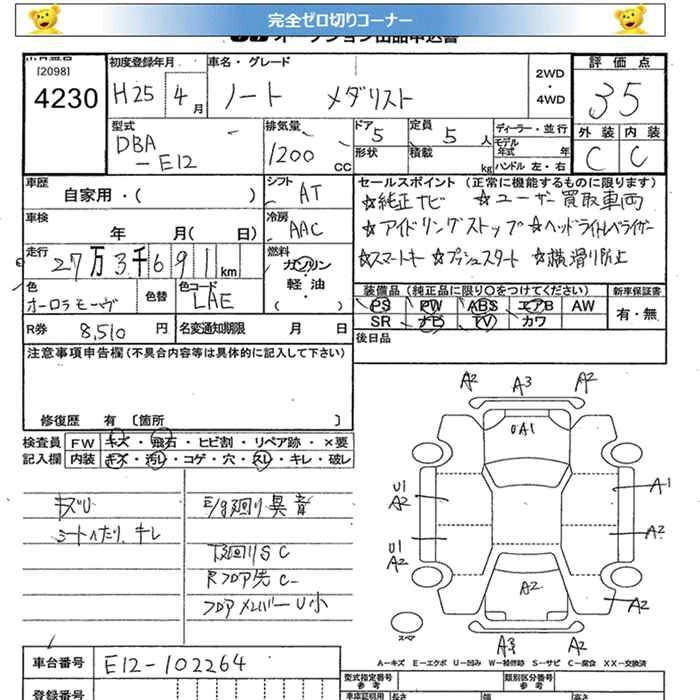 完全ゼロ切りコーナー
オークション出品申込書
[2098]
4230
初度登録年月 H25 4月
車名・グレード ノート メダリスト
2WD・4WD
評価点 35
型式 DBA-E12
排気量 1200 CC
ドア 5
形状
定員 5 人
積載 kg
ディーラー・並行
モデル年式 年
ハンドル 左・右
外装 C
内装 C
車歴 自家用・( )
シフト AT
セールスポイント (正常に機能するものに限ります)
☆純正ナビ ☆ユーザー買取車両
☆アイドリングストップ ☆ヘッドライトレベライザー
☆スマートキー ☆プッシュスタート ☆横滑り防止
車検 年 月( 日)
冷房 AAC
走行 27万3千691km
燃料 ガソリン・軽油 ( )
色 オーロラモーヴ
色替
色コード LAE
装備品 (純正品に限り○をつけてください)
新車保証書
PS PW ABS エアB AW
有・無
SR ナビ TV カワ
R券 8,510 円
名変通知期限 月 日
後日品
注意事項申告欄 (不具合内容等は具体的に記入して下さい)
修復歴 有 〔箇所 〕
検査員 FW キズ・飛石・ヒビ割・リペア跡・×要
記入欄 内装 キズ・汚レ・コゲ・穴・スレ・キレ・破レ
キズU
シートへたり、キレ
E/g廻り異音
下廻りSC
Rフロア先C-
フロアメンバーU小
A2 A3 A2
UA1
U1
A2
A1
U1
A2
A2
A2
A2
スペア
A3 A2
A-キズ E-エクボ U-凹み W-補修跡 S-サビ C-腐食 XX-交換済
車台番号 E12-102264
登録番号
型式指定番号 参考
類別区分番号 参考
長さ
幅
高さ